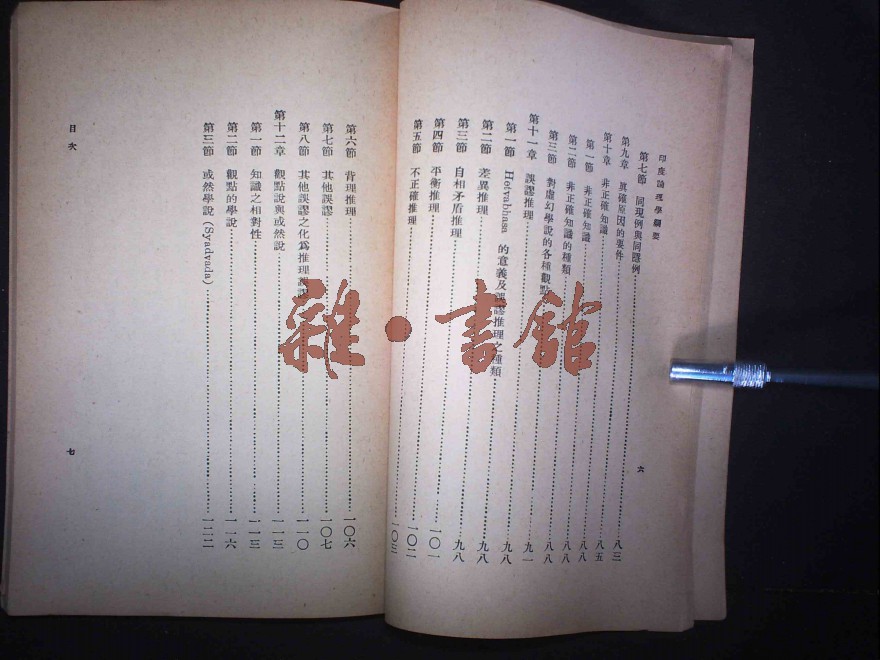 印度論理學綱要
六
第七節 同現例與同隱例 八三
第九章 眞確原因的要件 八五
第十章 非正確知識 八八
第一節 非正確知識 八八
第二節 非正確知識的種類 八八
第三節 對虛幻學說的各種觀點
第十一章 誤謬推理
第一節 Hetvabhasa 的意義及誤謬推理之種類 九八
第二節 差異推理 九八
第三節 自相矛盾推理 九八
第四節 平衡推理 一〇一
第五節 不正確推理 一〇二
一〇三
第六節 背理推理 一〇六
第七節 其他誤謬 一〇七
第八節 其他誤謬之化爲推理誤謬 一一〇
第十二章 觀點說與或然說 一一三
第一節 知識之相對性 一一三
第二節 觀點的學說 一一六
第三節 或然學說 (Syadvada) 一二二
目次
七
雜·書館